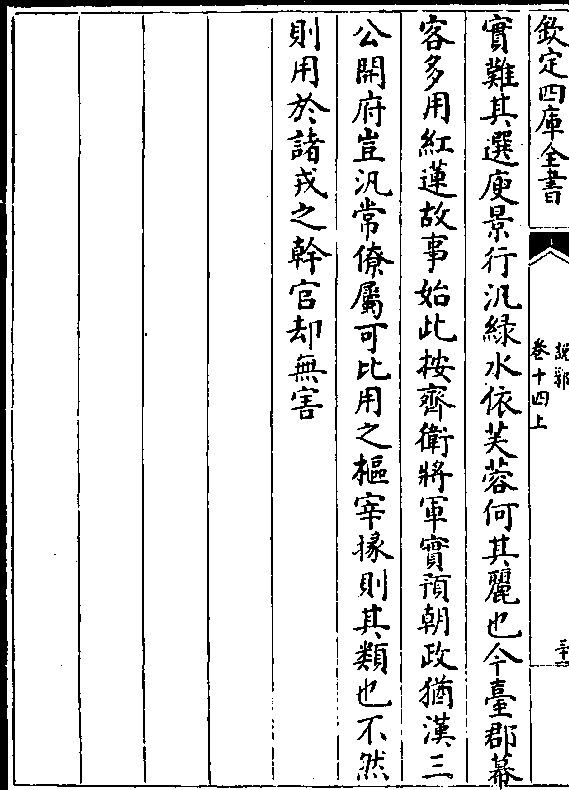 欽定四庫全書
說郛
卷十四上
實難其選庾景行汎緑水依芙蓉何其麗也今臺郡幕
客多用紅蓮故事始此按齊衛將軍實預朝政猶漢三
公開府豈汎常僚屬可比用之樞宰掾則其類也不然
則用於諸戎之幹官却無害